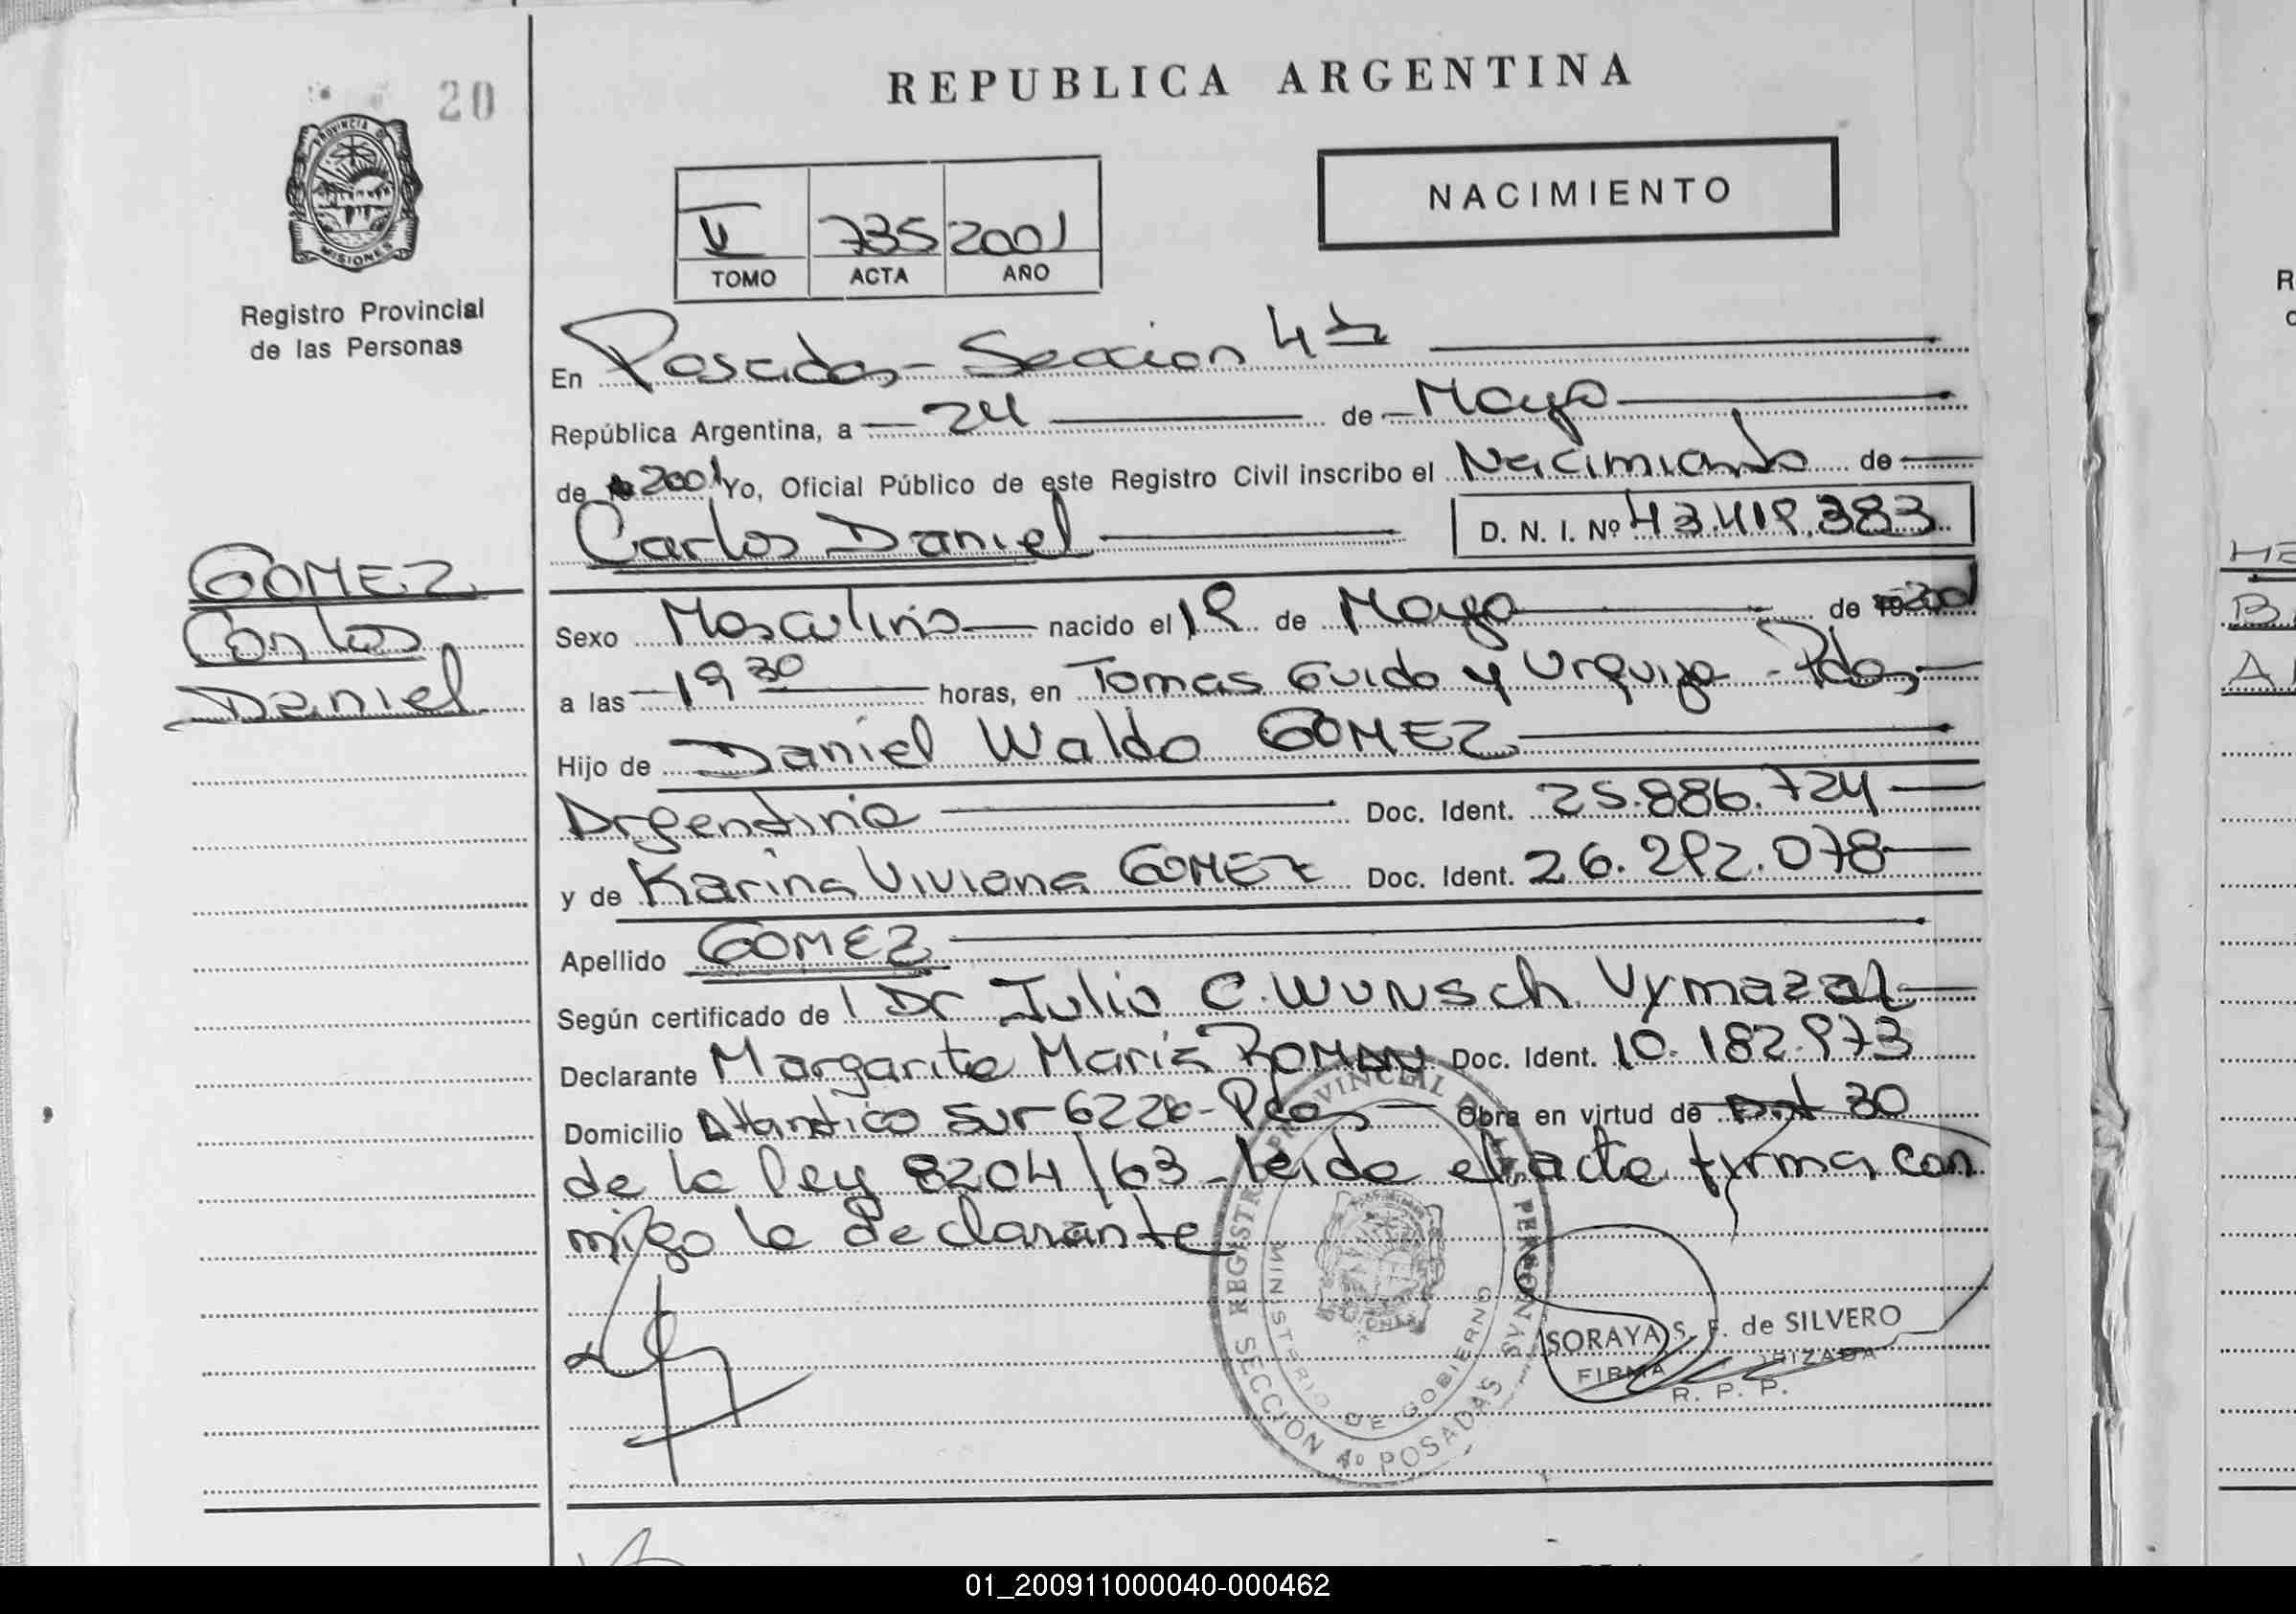 20
REPUBLICA ARGENTINA
PROVINCIA D
MISIONES
Registro Provincial
de las Personas
NACIMIENTO
V 735 2001
TOMO ACTA AÑO
En Posadas - Seccion 4ta
República Argentina, a - 24 de Mayo
de 2001 Yo, Oficial Público de este Registro Civil inscribo el Nacimiento de
Carlos Daniel D. N. I. Nº 43.419.383
GOMEZ
Carlos
Daniel
Sexo Masculino nacido el 19 de Mayo de 2001
a las 19 30 horas, en Tomas Guido y Urquiza - Pdas
Hijo de Daniel Waldo GOMEZ
Argentino Doc. Ident. 25.886.724
y de Karina Viviana GOMEZ Doc. Ident. 26.292.078
Apellido GOMEZ
Según certificado de Dr Julio C. Wunsch Vymazal
Declarante Margarita Maria ROMAN Doc. Ident. 10.182.973
Domicilio Atlantico Sur 6226 - Pdas Obra en virtud de Art 30
de la ley 8204/63 - leido el acta firma con
migo la declarante
REGISTRO PROVINCIAL DE LAS PERSONAS
MINISTERIO DE GOBIERNO
SECCION 4º POSADAS
SORAYA S. F. de SILVERO
FIRMA AUTORIZADA
R. P. P.
01_200911000040-000462